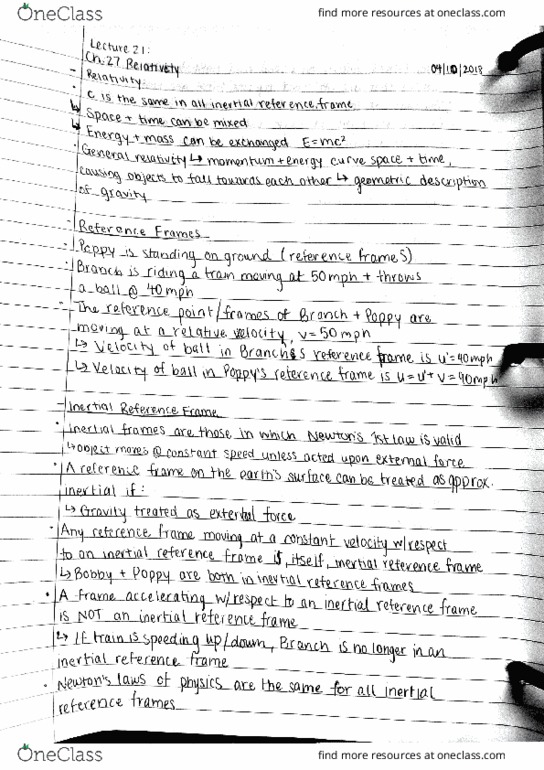 OneClass
find more resources at oneclass.com
Lecture 21:
Ch. 27 Relativity
04/10/2018
- Relativity:
c is the same in all inertial reference frame
↳ Space + time can be mixed
↳ Energy + mass can be exchanged E=mc²
General relativity ↳ momentum + energy curve space + time,
causing objects to fall towards each other ↳ geometric description
of gravity
Reference Frames
· Poppy is standing on ground (reference frame S)
· Branch is riding a train moving at 50mph + throws
a ball @ 40mph
- The reference point/frames of Branch + Poppy are
moving at a relative velocity, v=50mph
↳ Velocity of ball in Branch's reference frame is u'=40mph
↳ Velocity of ball in Poppy's reference frame is u=u'+v=90mph
Inertial Reference Frame
· Inertial frames are those in which Newton's 1st law is valid
↳ object moves @ constant speed unless acted upon external force
· A reference frame on the earth's surface can be treated as approx.
inertial if:
↳ Gravity treated as external force
· Any reference frame moving at a constant velocity w/respect
to an inertial reference frame is, itself, inertial reference frame
↳ Bobby + Poppy are both in inertial reference frames
· A frame accelerating w/respect to an inertial reference frame
is NOT an inertial reference frame
↳ If train is speeding up/down, Branch is no longer in an
inertial reference frame
· Newton's laws of physics are the same for all inertial
reference frames
OneClass
find more resources at oneclass.com